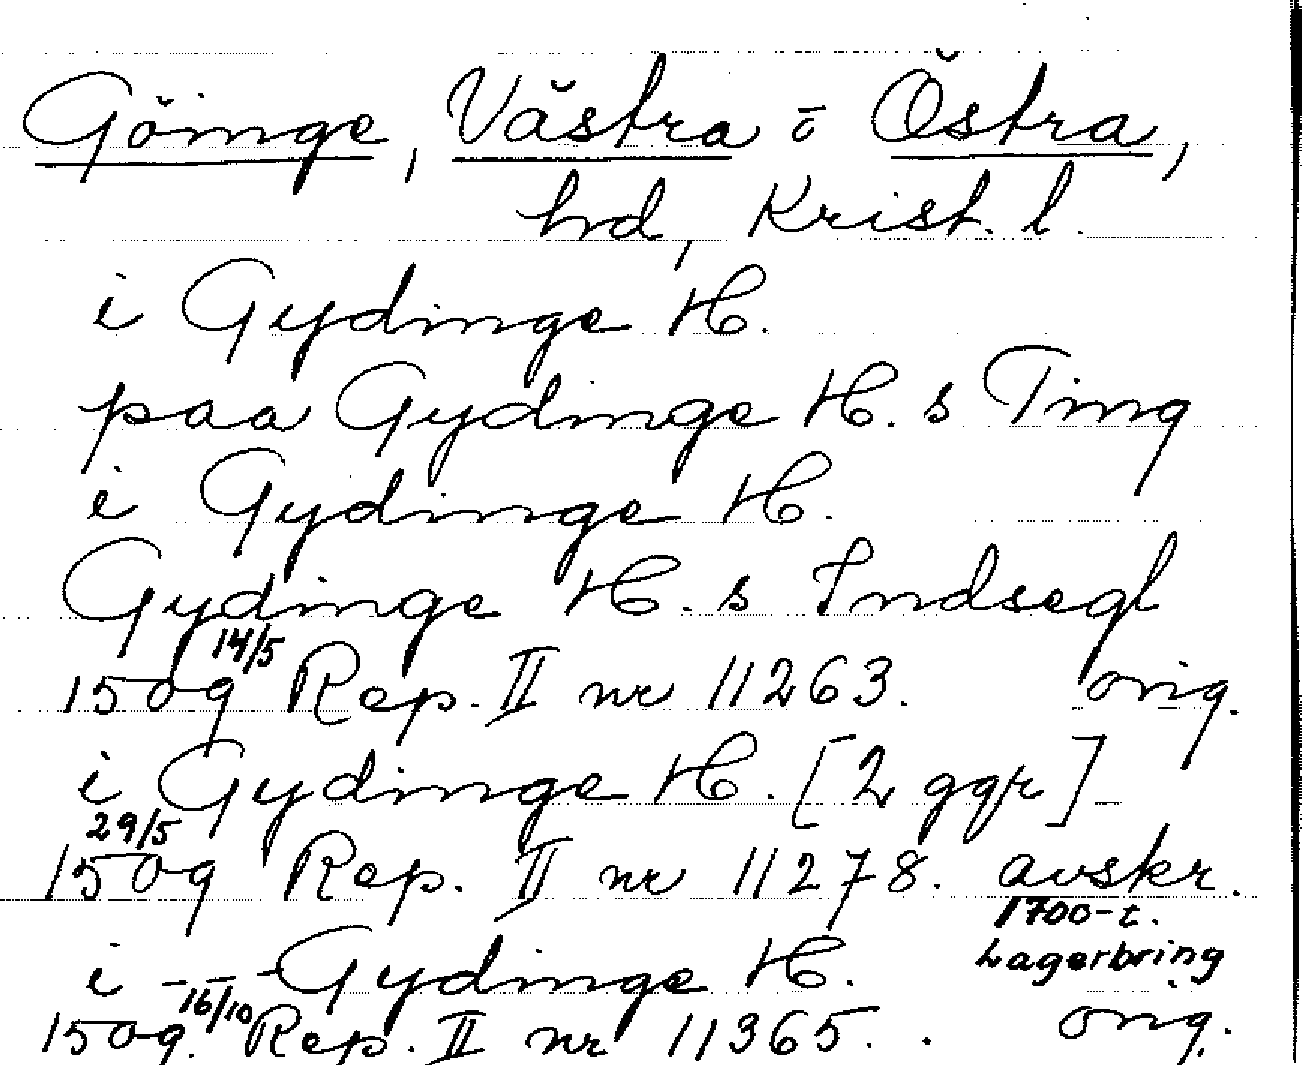 Göinge, Västra o Östra,
hd, Krist. l.
i Gydinge H.
paa Gydinge H. s Ting
i Gydinge H.
Gydinge H. s Indsegl
1509 14/5 Rep. II nr 11263. orig.
i Gydinge H. [2 ggr]
1509 29/5 Rep. II nr 11278. avskr.
1700-t.
Lagerbring
i - - - Gydinge H.
1509. 16/10 Rep. II nr 11365. . orig.